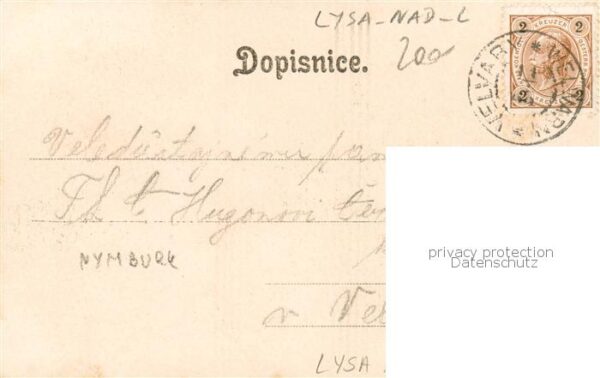 LYSA-NAD-L
200
2 KREUZER 2
2 2
VELVARY * WELWARN *
Dopisnice.
Veledůstojnému pan
Th. C. Hugonovi
privacy protection
Datenschutz
NYMBURK
v Vel
LYSA